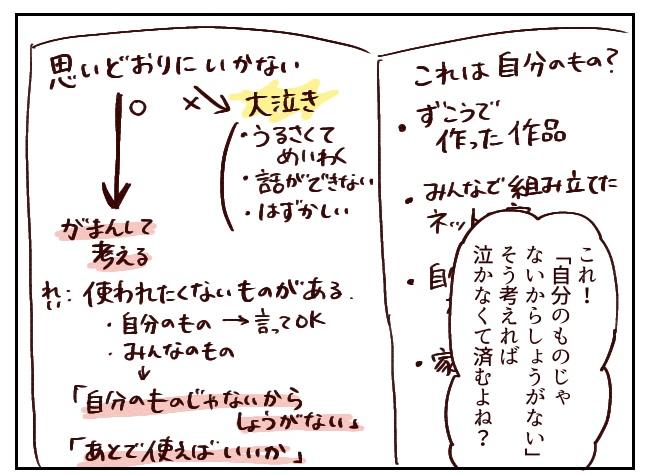 思いどおりにいかない
○
×
大泣き
・うるさくて
めいわく
・話ができない
・はずかしい
がまんして
考える
れい:使われたくないものがある.
・自分のもの→言ってOK
・みんなのもの
↓
「自分のものじゃないから
しょうがない」
「あとで使えばいいか」
これは自分のもの?
・ずこうで
作った作品
・みんなで組み立てた
ネット
・自
・家
これ!
「自分のものじゃ
ないからしょうがない」
そう考えれば
泣かなくて済むよね?